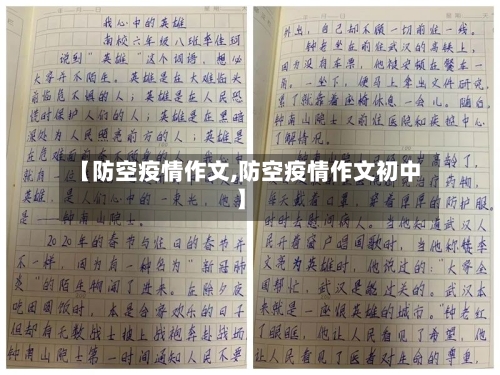 我心中的英雄
南校六年级八班李佳珂
说到“英雄”这个词语，想必
大家并不陌生。英雄是在大难临头
前临危不惧的人；英雄是在人民恐
慌时保护人们的人；英雄是在黑暗
深处为人民照亮前方的人；英雄是
在危难面前
就是
英雄，是人们心中的一束光，他就
是——钟南山院士。
2020年的春节与往日的春节并
不一样，因为有一种名为“新冠肺
炎”的陌生物闯了进来。在除夕夜
吃团圆饭时，本是合家欢乐的日子
但却有无数战士披上战袍奔赴战场
钟南山院士第一时间通知人民不要
外出，自己却不顾一切前往一线。
钟老坐在前往武汉的高铁上，
因为没有车票，他被安顿在餐车一
角。一坐下，便马上拿出文件研究，
累了就靠着座椅休息一会儿。随后，
钟南山院士又前往医院和疾控中心
了解情况。
高龄了，
药物，
每天戴着口罩，穿着厚厚的防护服，
时时去慰问病人。当他知道武汉人
民开着窗户唱国歌时，当他称赞李
文亮为英雄时，他说过的：“大家全
国帮忙，武汉是能过关的。武汉本
来就是一座很英雄的城市。”钟老红
了眼眶，他让人民看见了希望，他
让人民看见了医者对生命的尊重，
【防空疫情作文,防空疫情作文初中
】